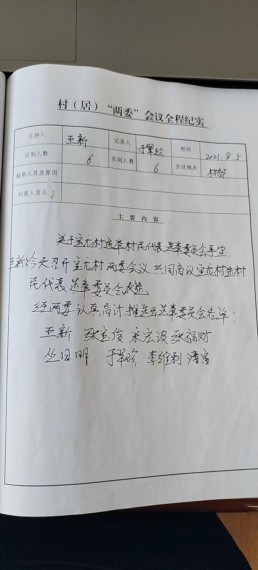 村（居）“两委”会议全程纪实
主持人 王新 记录人 于翠珍 时间 2021.8.5
应到人数 6 实到人数 6 会议地点 村部
缺席人员及原因
列席人员
主要内容
关于宝龙村选举村民代表选举委员会事宜
王新: 今天召开宝龙村两委会议 共同商议宝龙村选村
民代表选举委员会
经两委认真商讨, 推选出选举委员会名单:
王新 张宝俊 宋宏波
丛日明 于翠珍 李维利